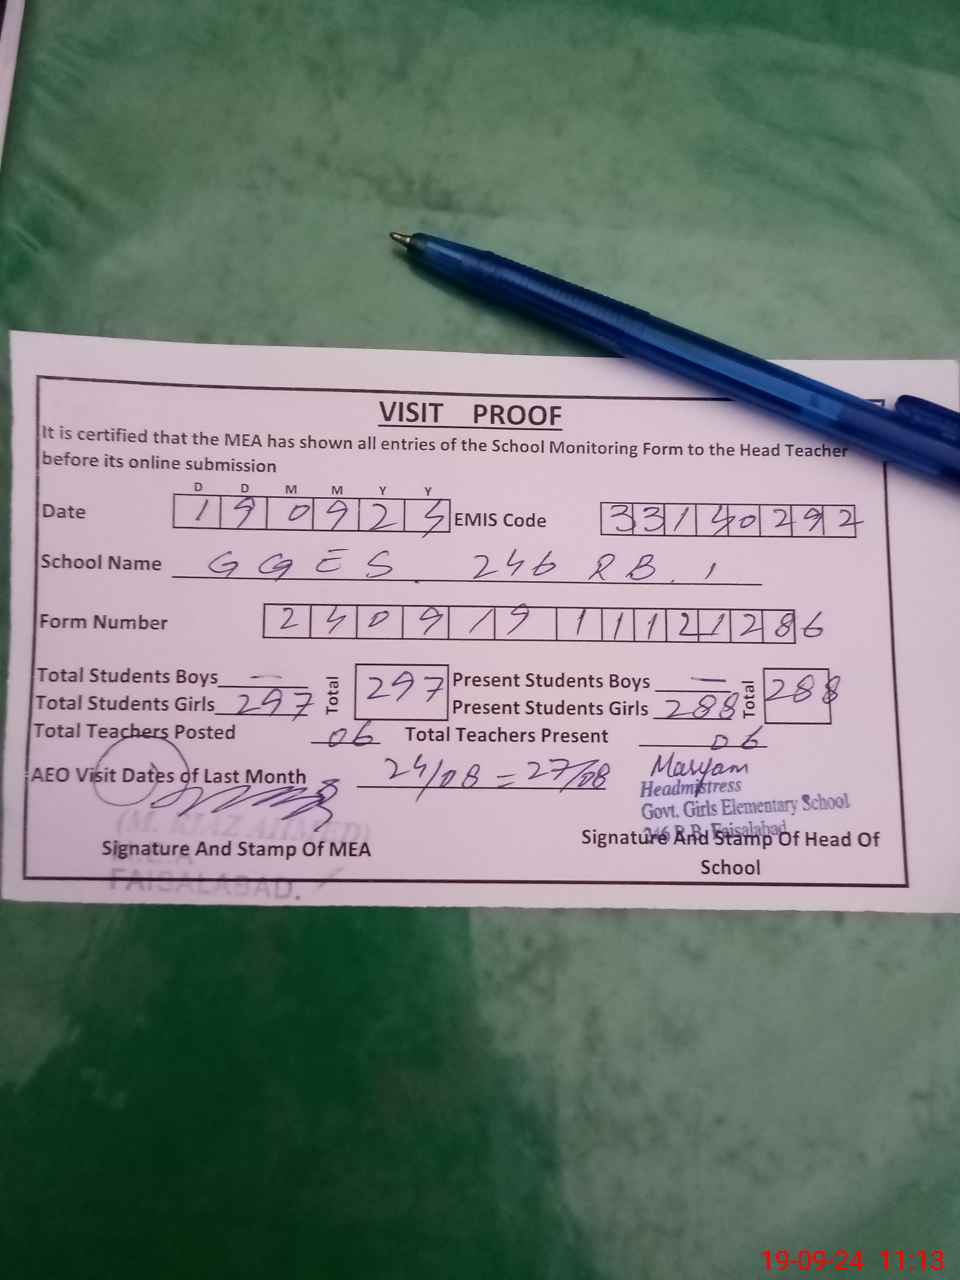 VISIT PROOF
It is certified that the MEA has shown all entries of the School Monitoring Form to the Head Teacher
before its online submission
D D M M Y Y
Date 1 9 0 9 2 4 EMIS Code 3 3 1 4 0 2 9 2
School Name G G E S 246 R B 1
Form Number 2 4 0 9 1 9 1 1 1 2 1 2 8 6
Total Students Boys — Total 297 Present Students Boys — Total 288
Total Students Girls 297 Present Students Girls 288
Total Teachers Posted 06 Total Teachers Present 06
AEO Visit Dates of Last Month 24/08 = 27/08 Maryam
Headmistress
Govt. Girls Elementary School
246 R.B. Faisalabad
(M. RIAZ AHMED)
Signature And Stamp Of MEA Signature And Stamp Of Head Of
School
FAISALABAD.
19-09-24 11:13